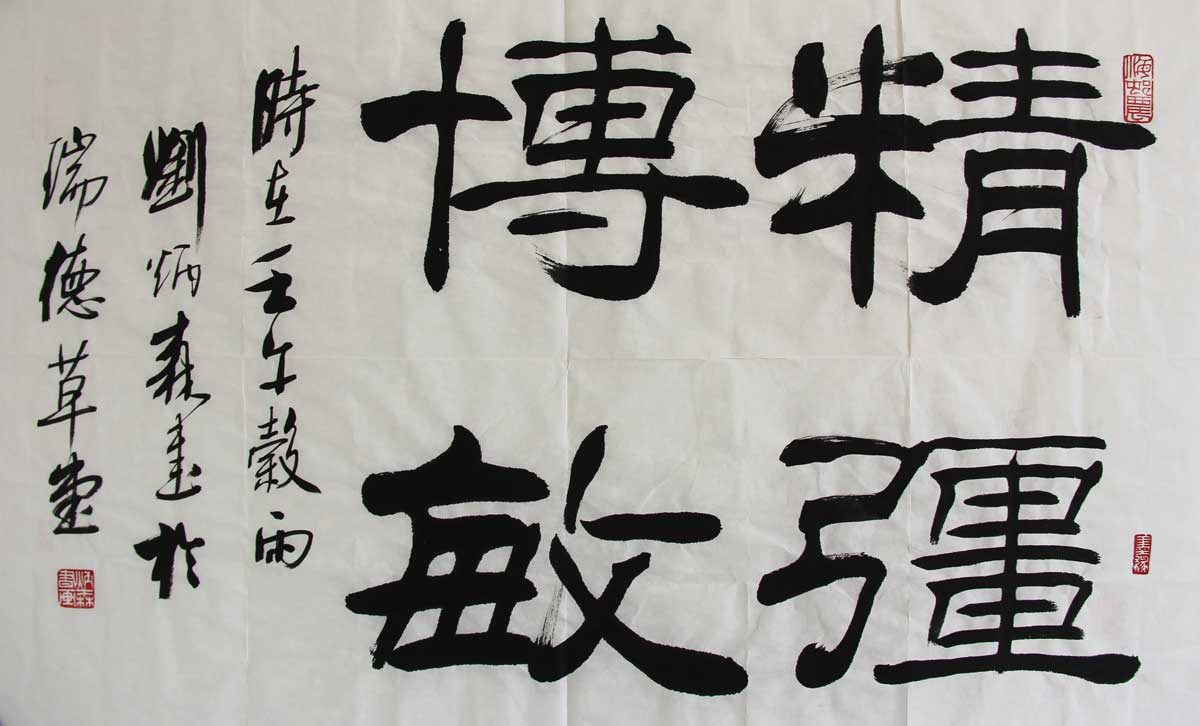 精彊
博敏
時在壬午穀雨
劉炳森書於
瑞德草堂